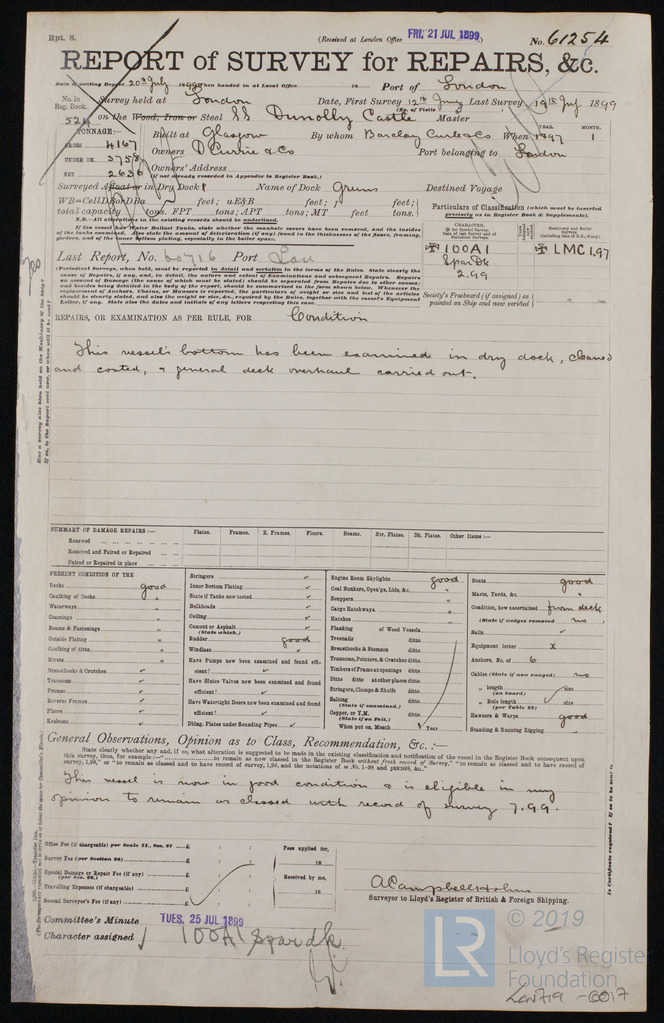 Rpt. 8.
(Received at London Office FRI. 21 JUL 1899)
No. 61254
REPORT of SURVEY for REPAIRS, &c.
Date of writing Report 20th July 1899 When handed in at Local Office 18 Port of London
No. in Reg. Book. Survey held at London Date, First Survey 12th June Last Survey 19th July 1899
(No. of Visits 3)
524 on the Wood, Iron or Steel SS Dunolly Castle Master
TONNAGE:—
GROSS 4167
UNDER DK. 3758
NET 2626
Built at Glasgow By whom Barclay Curle & Co When YEAR. 1897 MONTH. 1
Owners D Currie & Co Port belonging to London
Owners' Address
(If not already recorded in Appendix to Register Book.)
Surveyed Afloat or in Dry Dock? Name of Dock Greens Destined Voyage
WB=CellDBorDBa feet; uE&B feet; f feet;
total capacity tons. FPT tons; APT tons; MT feet tons.
N.B.—All alterations in the existing records should be underlined.
If the vessel has Water Ballast Tanks, state whether the manhole covers have been removed, and the insides
of the tanks examined. Also state the amount of deterioration (if any) found in the thicknesses of the floors, framing,
girders, and of the inner bottom plating, especially in the boiler space.
Particulars of Classification (which must be inserted precisely as in Register Book & Supplements).
CHARACTER.
✠ 100A1
Spardk
2.99
Machinery and Boiler Surveys
✠ LMC 1.97
Last Report, No. 60716 Port Lon
(Periodical Surveys, when held, must be reported in detail and seriatim in the terms of the Rules. State clearly the
cause of Repairs, if any, and, in detail, the nature and extent of Examinations and subsequent Repairs. Repairs
on account of Damage (the cause of which must be stated) should be separated from Repairs due to other causes;
and besides being detailed in the body of the report, should be summarised in the form shown below. Whenever the
replacement of Anchors, Chains, or Hawsers is reported, the particulars of weight or size and test of the articles
should be clearly stated, and also the weight or size, &c., required by the Rules, together with the vessel's Equipment
Letter, if any. State also the dates and initials of any letters respecting this case.
Society's Freeboard (if assigned) as painted on Ship and now verified
REPAIRS, OR EXAMINATION AS PER RULE, FOR Condition
This vessel's bottom has been examined in dry dock, cleaned
and coated, & general deck overhaul carried out.
SUMMARY OF DAMAGE REPAIRS :— Plates. Frames. R. Frames. Floors. Beams. Str. Plates. Dk. Plates. Other Items :—
Renewed
Removed and Faired or Repaired
Faired or Repaired in place
PRESENT CONDITION OF THE
Decks good
Caulking of Decks "
Waterways "
Coamings "
Beams & Fastenings "
Outside Plating "
Caulking of ditto "
Rivets "
Breasthooks & Crutches ✓
Transoms ✓
Frames ✓
Reverse Frames ✓
Floors ✓
Keelsons ✓
Stringers ✓
Inner Bottom Plating ✓
State if Tanks now tested ✓
Bulkheads ✓
Ceiling ✓
Cement or Asphalt ✓
(State which.)
Rudder good
Windlass "
Have Pumps now been examined and found efficient? ✓
Have Sluice Valves now been examined and found efficient? ✓
Have Watertight Doors now been examined and found efficient? ✓
Dblng. Plates under Sounding Pipes ✓
Engine Room Skylights good
Coal Bunkers, Open'gs, Lids, &c. "
Scuppers "
Cargo Hatchways "
Hatches "
Planking of Wood Vessels
Treenails ditto
Breasthooks & Stemson ditto
Transoms, Pointers, & Crutches ditto
Timbers of Frame at openings ditto
Ditto ditto at other places ditto
Stringers, Clamps & Shelfs ditto
Salting ditto
(State if examined.)
Copper, or Y.M. ditto
(State if on Felt.)
When put on, Month Year
Boats good
Masts, Yards, &c. "
Condition, how ascertained from deck
(State if wedges removed no)
Sails ✓
Equipment letter X
Anchors, No. of 6
Cables (State if now ranged) no
" length (on board) size
" Rule length (per Table 22) size
Hawsers & Warps good
Standing & Running Rigging "
General Observations, Opinion as to Class, Recommendation, &c. :—
State clearly whether any, and if so, what alteration is suggested to be made in the existing classification and notification of the vessel in the Register Book consequent upon
this survey, thus, for example :—" to remain as now classed in the Register Book without fresh record of Survey," "to remain as classed and to have record of
survey, 1,98," or "to remain as classed and to have record of survey, 1,98, and the notations of ss No. 1-98 and ptND98, &c."
This vessel is now in good condition & is eligible in my
opinion to remain as classed with record of survey 7.99.
Office Fee (if chargeable) per Scale II., Sec. 27 £
Survey Fee (per Section 28) £
Special Damage or Repair Fee (if any) £
(per Sec. 28.)
Travelling Expenses (if chargeable) £
Second Surveyor's Fee (if any) £
Fees applied for,
18
Received by me,
18
A Campbell Holms
Surveyor to Lloyd's Register of British & Foreign Shipping.
Committee's Minute TUES. 25 JUL 1899
Character assigned 100A1 Spardk
LR © 2019
Lloyd's Register
Foundation
Lon719 - 0017